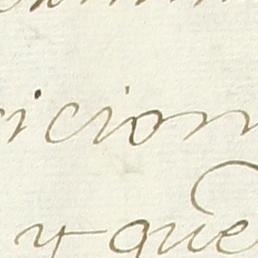 icion
y que